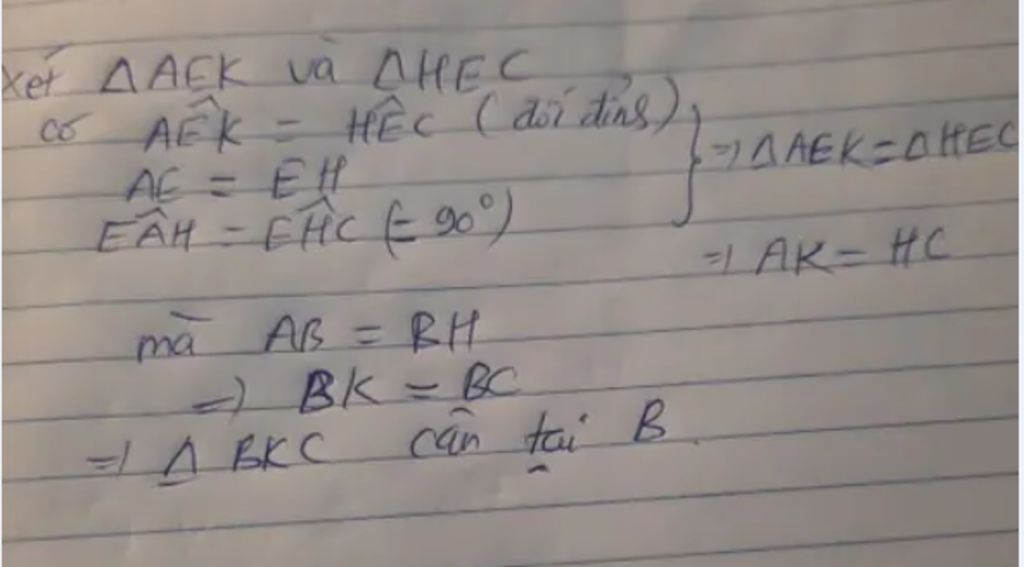 Xét ΔAEK và ΔHEC
có AÊK = HÊC (đối đỉnh)
AE = EH
EÂH = EĤC (= 90°)
} => ΔAEK = ΔHEC
=> AK = HC
mà AB = BH
=> BK = BC
=> Δ BKC cân tại B.